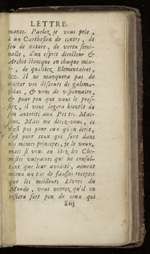 LETTRE.
mante. Parlez, je vous prie,
à un Carthesien de cones, de
feu de nature, de vertu semi-
nalle, d'un esprit directeur &
Architectonique en chaque mixte-
, de qualitez Elementaires,
&c. Il ne manquera pas de
traiter vos discours de galima-
thias, & vous de visionnaire,
& pour peu que vous le pres-
siez, il vous logera bientôt de
son autorité aux Petites Mai-
sons. Mais me direz-vous, ce
n'est pas pour eux qu'on écrit,
c'est pour ceux qui sont dans
nos mêmes principes, je le veux,
mais si vous en ôtez les Chy-
mistes vulgaires qui ne consul-
tent que leur avidité, aiment
mieux un tas de fausses receptes
que les meilleurs Livres du
Monde, vous verrez qu'il en
restera fort peu de ceux qui